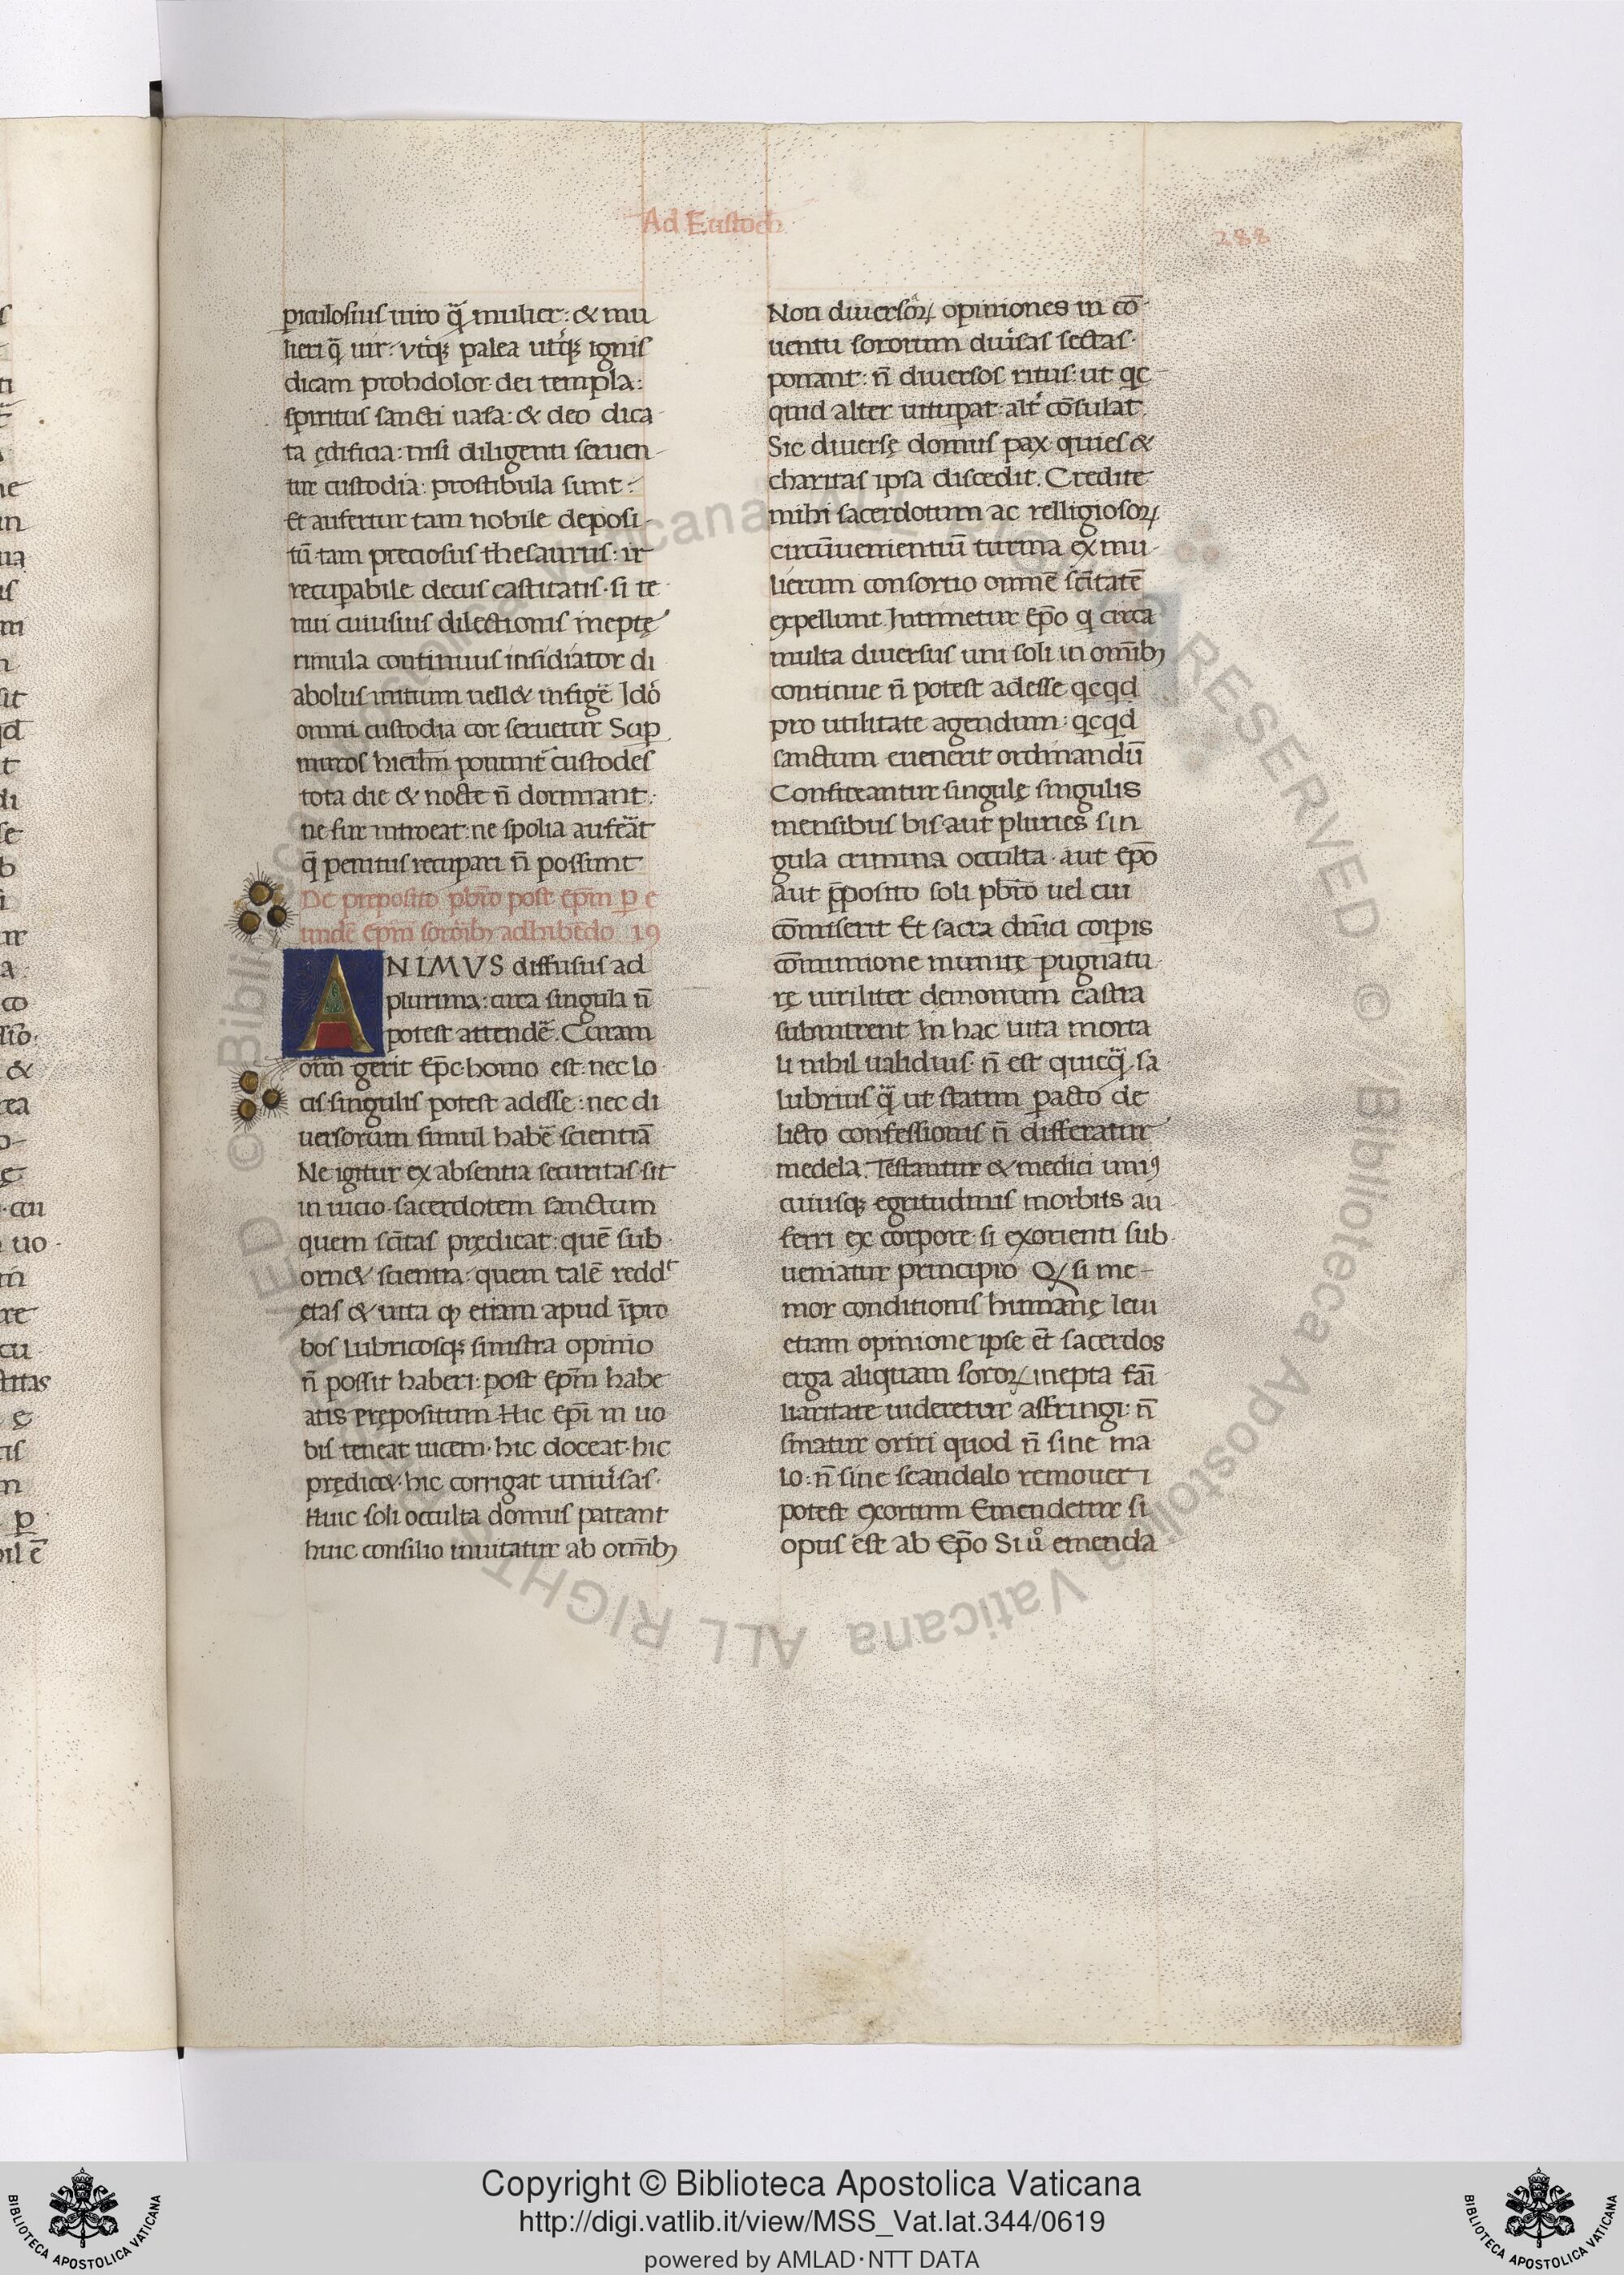 Ad Eustoch
288
piculosius uiro q̃ mulier: & mu
lieri q̃ uir: vtq́ȝ palea utq́ȝ ignis
dicam prohdolor dei templa:
spiritus sancti uasa: & deo dica
ta ędificia: nisi diligenti seruen-
tur custodia: prostibula sunt:
Et aufertur tam nobile deposi-
tũ tam preciosus thesaurus: ir
recupabile decus castitatis. si te
nui cuiusuis dilectionis ineptę
rimula continuus insidiator di
abolus initium uell& infigẽ Idó
omni custodia cor seruetur Sup
muros hierlm̃ ponunt̃ custodes
tota die & nocte ñ dormiant:
ne fur introeat: ne spolia auferãt
q̃ penitus recupari ñ possunt
De preposito pbr̃o post ep̃m p e
undẽ ep̃m sororib; adhibẽdo 19
ANIMVS diffusus ad
plurima: circa singula ñ
potest attendẽ. Curam
om̃ gerit Ep̃c. homo est: nec lo
cis singulis potest adesse: nec di
uersorum simul habẽ scientiã
Ne igitur ex absentia securitas sit
in uicio. sacerdotem sanctum
quem sc̃itas prędicat: quẽ sub
orn& scientia: quem talẽ reddt
ętas & uita q etiam apud ĩpro
bos lubricosqȝ sinistra opinio
ñ possit haberi: post Ep̃m habe
atis Prępositum Hic Ep̃i in uo
bis teneat uicem. hic doceat. hic
prędic&. hic corrigat uniúsas.
Huic soli occulta domus pateant
huic consilio inuitatur ab om̃ib;
Non diuersoꝝ opiniones in cõ
uentu sororum duísas sectas.
ponant: ñ diuersos ritus: ut qc
quid alter uitupat. alt́ cõsulat.
Sic diuersę domus pax quies &
charitas ipsa discedit. Credite
mihi sacerdotum ac relligiosoꝝ
circũuenientiũ turma ex mu-
lierum consortio omnẽ sc̃itatẽ
expellunt Intimetur Ep̃o q circa
multa diuersus uni soli in om̃ib;
continue ñ potest adesse qcqd
pro utilitate agendum: qcqd
sanctum euenerit ordinandũ
Confiteantur singulę singulis
mensibus bis aut pluries sin
gula crimina occulta. aut Ep̃o
aut p̃posito soli pbr̃o uel cui
cõmiserit Et sacra dñici corpis
cõmunione munitę pugnatu
rę uiriliter dęmonum castra
subintrent In hac uita morta
li nihil ualidius. ñ est quicq̃. sa
lubrius q̃ ut statim pacto de
licto confessionis ñ differatur
medela. Testantur & medici uniꝰ
cuiusqȝ egritudinis morbus au
ferri ex corpore. si exorienti sub
ueniatur principio Q si me-
mor conditionis humanę leui
etiam opinione ipse ẽt sacerdos
erga aliquam soroꝝ inepta fãi
liaritate uideretur astringi: ñ
sinatur oriri quod ñ sine ma
lo: ñ sine scandalo remoueri
potest exortum Emendetur si
opus est ab Ep̃o Si u̾ emenda
Copyright © Biblioteca Apostolica Vaticana
http://digi.vatlib.it/view/MSS_Vat.lat.344/0619
powered by AMLAD·NTT DATA
BIBLIOTECA APOSTOLICA VATICANA
BIBLIOTECA APOSTOLICA VATICANA